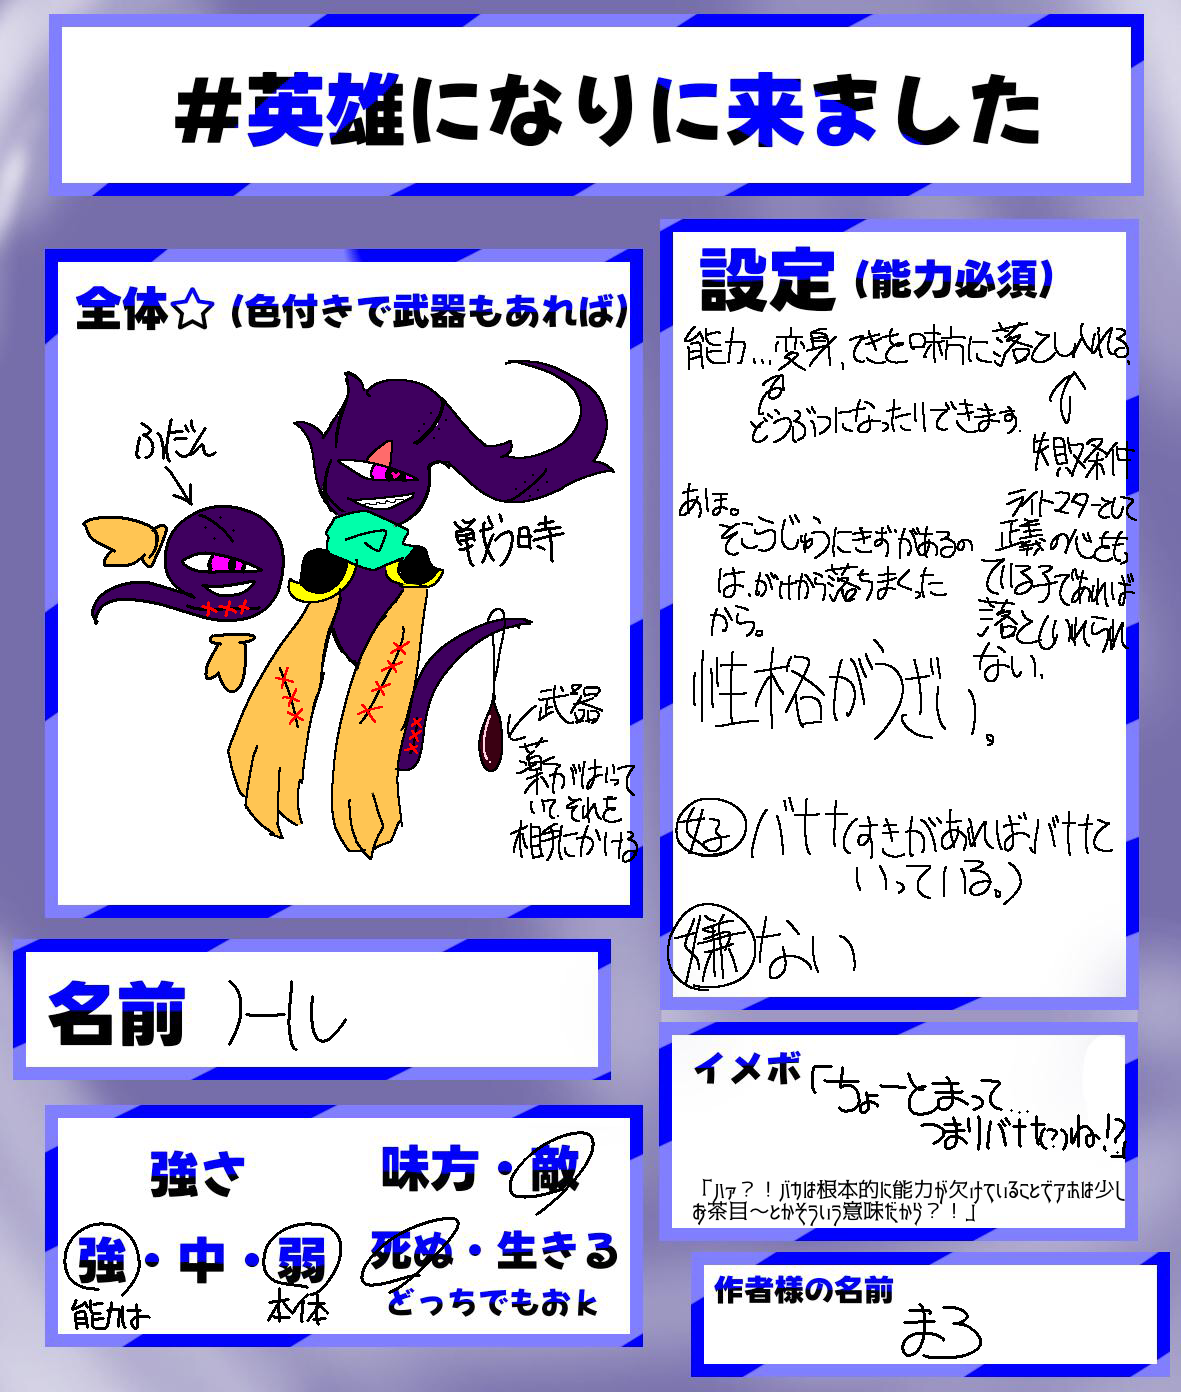 #英雄になりに来ました
全体☆(色付きで武器もあれば)
ふだん
戦う時
武器
薬がはいって
いて、それを
相手にかける
設定(能力必須)
能力…変身、てきを味方に落とし入れる、
どうぶつになったりできます。
失敗条件
ライトスターとして
正義の心をもっ
ている子であれば
落としいれられ
ない、
あほ。
そこうじゅうにきずがあるの
は、がけから落ちまくった
から。
性格がうざい。
好 バナナ(すきがあればバナナと
いっている。)
嫌 ない
名前 ハール
強さ
強・中・弱
能力は
本体
味方・敵
死ぬ・生きる
どっちでもおk
イメボ「ちょーとまって…
つまりバナナだね!?」
「ハァ?!バカは根本的に能力が欠けていることでアホは少し
お茶目~とかそういう意味だから?!」
作者様の名前
まろ